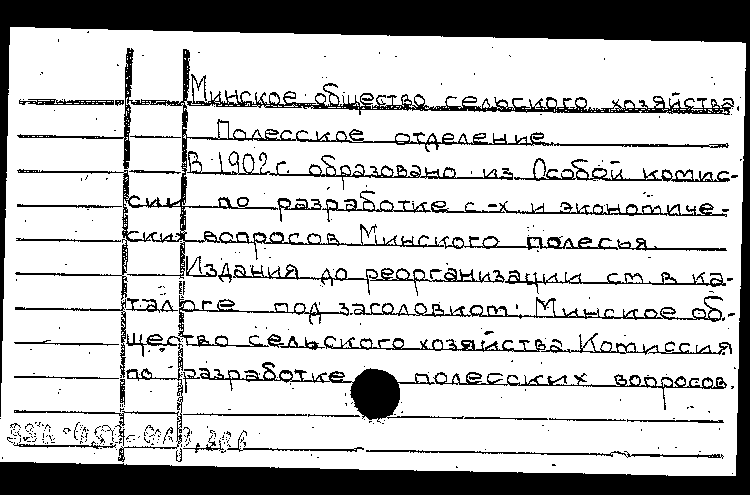 Минское общество сельского хозяйства.
Полесское отделение
В 1902 г. образовано из Особой комис-
сии по разработке с.-х и экономиче-
ских вопросов Минского полесья.
Издания до реорганизации см. в ка-
талоге под заголовком: Минское об-
щество сельского хозяйства. Комиссия
по разработке полесских вопросов.